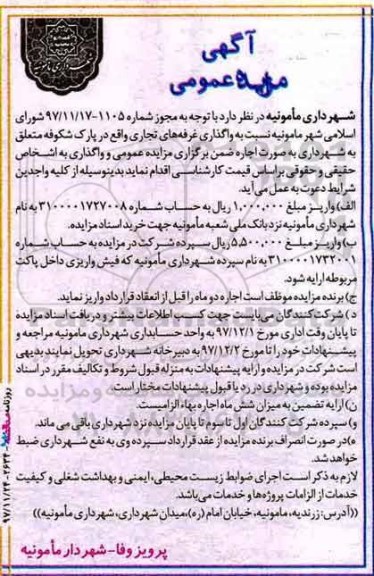 آگهی
مزایده عمومی
شهرداری مأمونیه در نظر دارد با توجه به مجوز شماره ۱۱۰۵-۹۷/۱۱/۱۷ شورای
اسلامی شهر مامونیه نسبت به واگذاری غرفه‌های تجاری واقع در پارک شکوفه متعلق
به شهرداری به صورت اجاره ضمن برگزاری مزایده عمومی و واگذاری به اشخاص
حقیقی و حقوقی براساس قیمت کارشناسی اقدام نماید بدینوسیله از کلیه واجدین
شرایط دعوت به عمل می‌آید.
الف) واریز مبلغ ۱,۰۰۰,۰۰۰ ریال به حساب شماره ۳۱۰۰۰۰۱۷۲۷۰۰۸ به نام
شهرداری مأمونیه نزد بانک ملی شعبه مأمونیه جهت خرید اسناد مزایده.
ب) واریز مبلغ ۵,۵۰۰,۰۰۰ ریال سپرده شرکت در مزایده به حساب شماره
۳۱۰۰۰۰۱۷۳۲۰۰۱ به نام سپرده شهرداری مأمونیه که فیش واریزی داخل پاکت
مربوطه ارایه شود.
ج) برنده مزایده موظف است اجاره دو ماه را قبل از انعقاد قرارداد واریز نماید.
د) شرکت کنندگان می‌بایست جهت کسب اطلاعات بیشتر و دریافت اسناد مزایده
تا پایان وقت اداری مورخ ۹۷/۱۲/۱ به واحد حسابداری شهرداری مامونیه مراجعه و
پیشنهادات خود را تا مورخ ۹۷/۱۲/۲ به دبیرخانه شهرداری تحویل نمایند بدیهی
است شرکت در مزایده و ارایه پیشنهادات به منزله قبول شروط و تکالیف مقرر در اسناد
مزایده بوده و شهرداری در رد یا قبول پیشنهادات مختار است.
ن) ارایه تضمین به میزان شش ماه اجاره بها، الزامیست.
و) سپرده شرکت کنندگان اول تا سوم تا پایان مزایده نزد شهرداری باقی می ماند.
ه) در صورت انصراف برنده مزایده از عقد قرارداد سپرده وی به نفع شهرداری ضبط
خواهد شد.
لازم به ذکر است اجرای ضوابط زیست محیطی، ایمنی و بهداشت شغلی و کیفیت
خدمات از الزامات پروژه‌ها و خدمات می‌باشد.
((آدرس: زرندیه، مامونیه، خیابان امام (ره)، میدان شهرداری، شهرداری مأمونیه))
پرویز وفا - شهردار مأمونیه